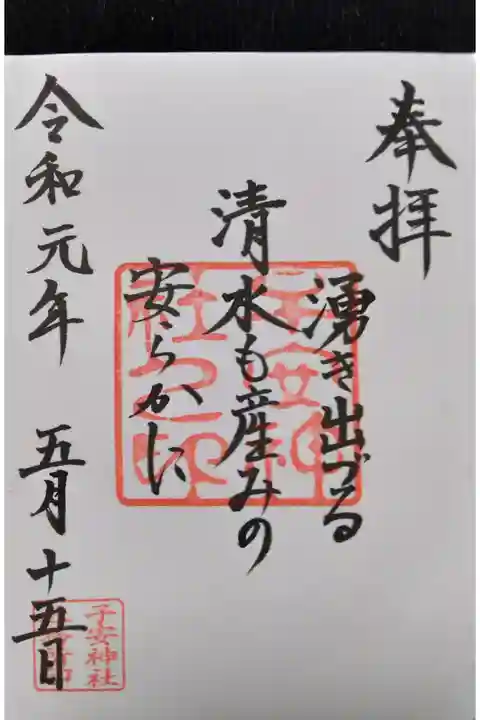 奉拝
湧き出づる
清水も産みの
安らかに
令和元年 五月十五日
子安神社之印
子安神社